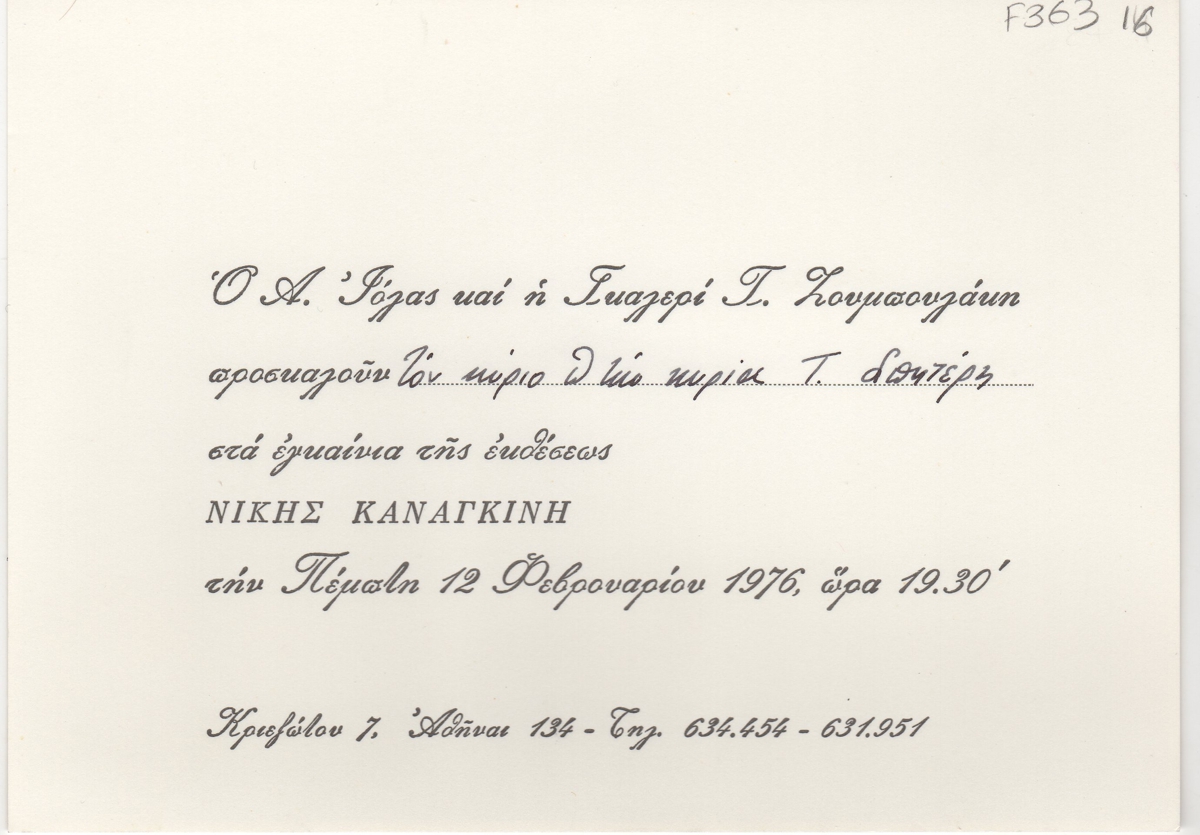 F363 16
Ὁ Α. Ἰόλας καί ἡ Γκαλερί Τ. Ζουμπουλάκη
προσκαλοῦν τόν κύριο & τήν κυρία Τ. Σπητέρη
στά ἐγκαίνια τῆς ἐκθέσεως
ΝΙΚΗΣ ΚΑΝΑΓΚΙΝΗ
τήν Πέμπτη 12 Φεβρουαρίου 1976, ὥρα 19.30΄
Κριεζώτου 7, Ἀθῆναι 134 - Τηλ. 634.454 - 631.951